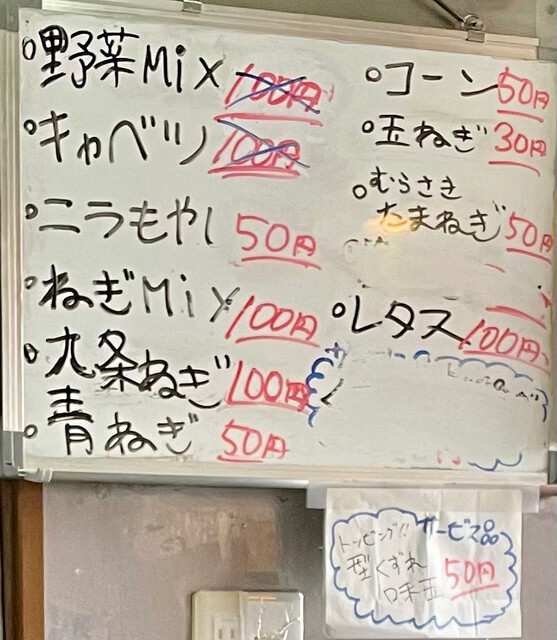 野菜Mix 100円
キャベツ 100円
ニラもやし 50円
ねぎMix 100円
九条ねぎ 100円
青ねぎ 50円
コーン 50円
玉ねぎ 30円
むらさき
たまねぎ 50円
レタス 100円
サービス品
トッピング!!
型くずれ
味玉 50円